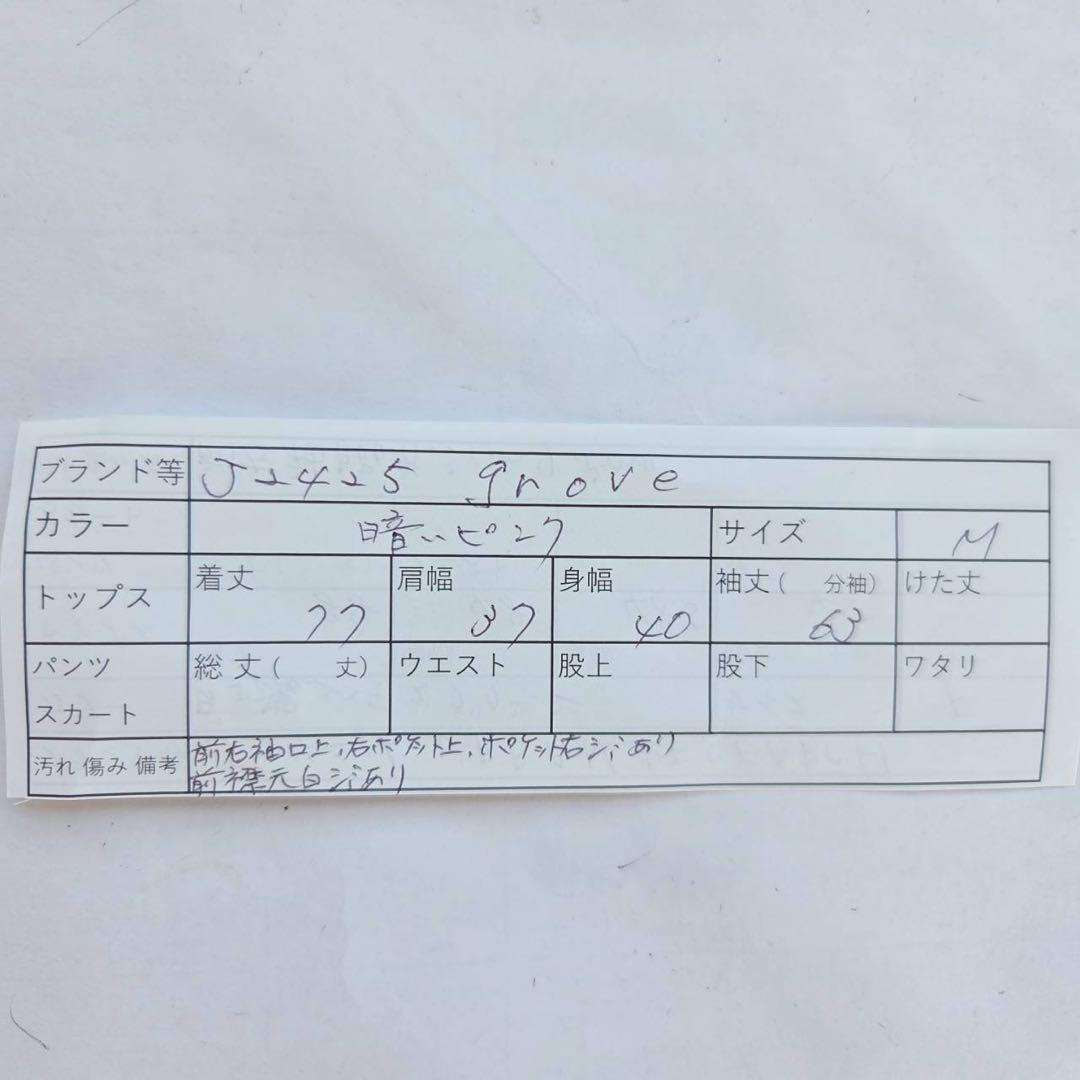 ブランド等 J2425 grove
カラー 暗いピンク サイズ M
トップス 着丈 77 肩幅 37 身幅 40 袖丈( 分袖) 63 けた丈
パンツ スカート 総丈( 丈) ウエスト 股上 股下 ワタリ
汚れ 傷み 備考 前右袖口上,右ポケット上,ポケット右シミあり
前襟元白シミあり